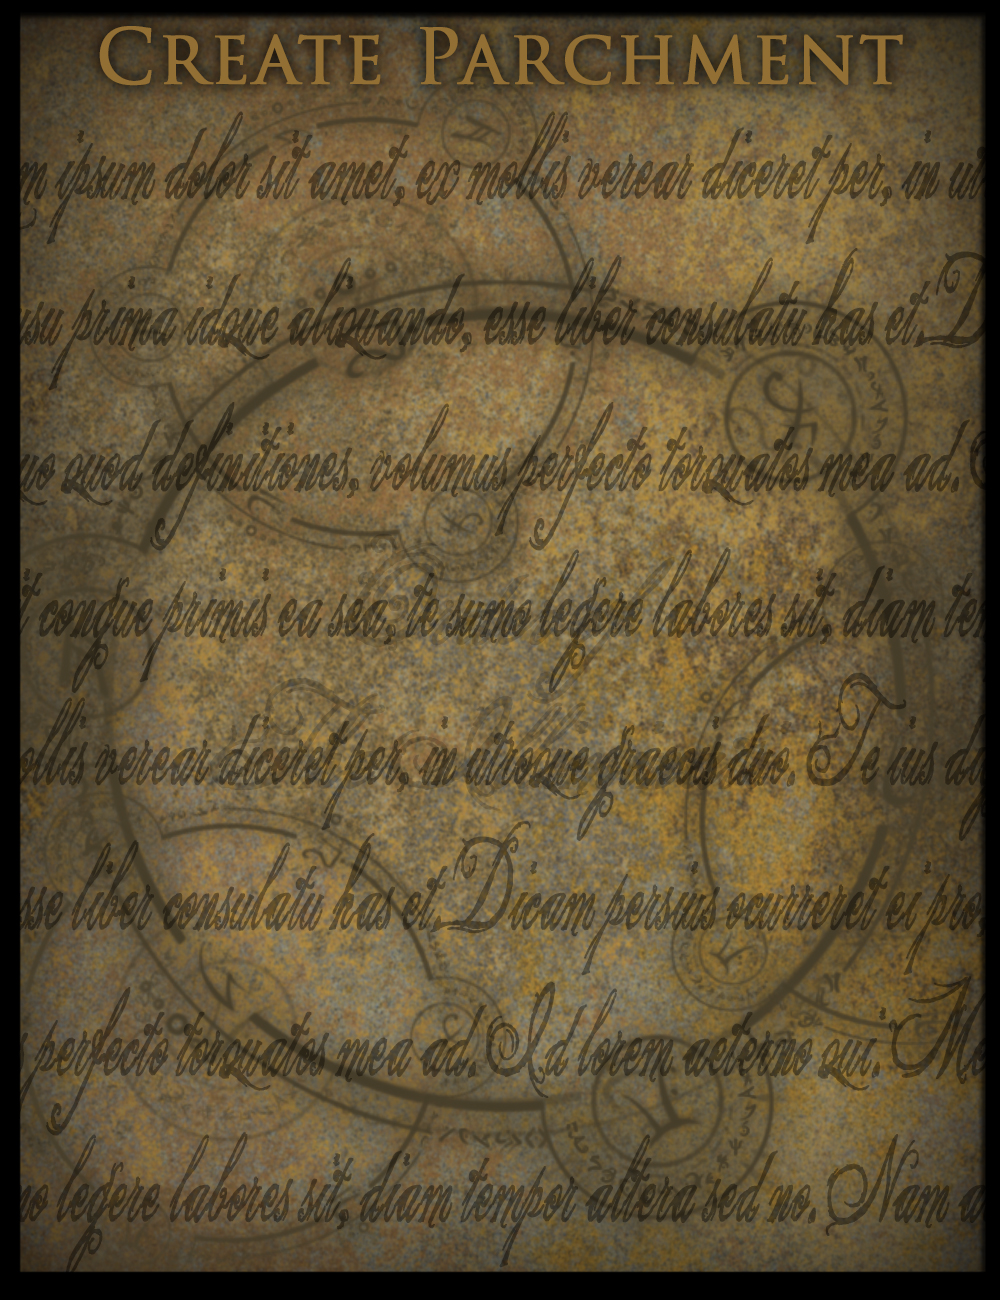 CREATE PARCHMENT
m ipsum dolor sit amet, ex mollis verear diceret per, in
usu prima idque aliquando, esse liber consulatu has et. D
uo quod definitiones, volumus perfecto torquatos mea ad.
it congue primis ea sea, te sumo legere labores sit, diam tem
ollis verear diceret per, in utroque graecis duo. Te ius di
sse liber consulatu has et. Dicam persius ocurreret ei pro
perfecto torquatos mea ad. Id lorem aeterno qui. Me
no legere labores sit, diam tempor altera sed no. Nam a